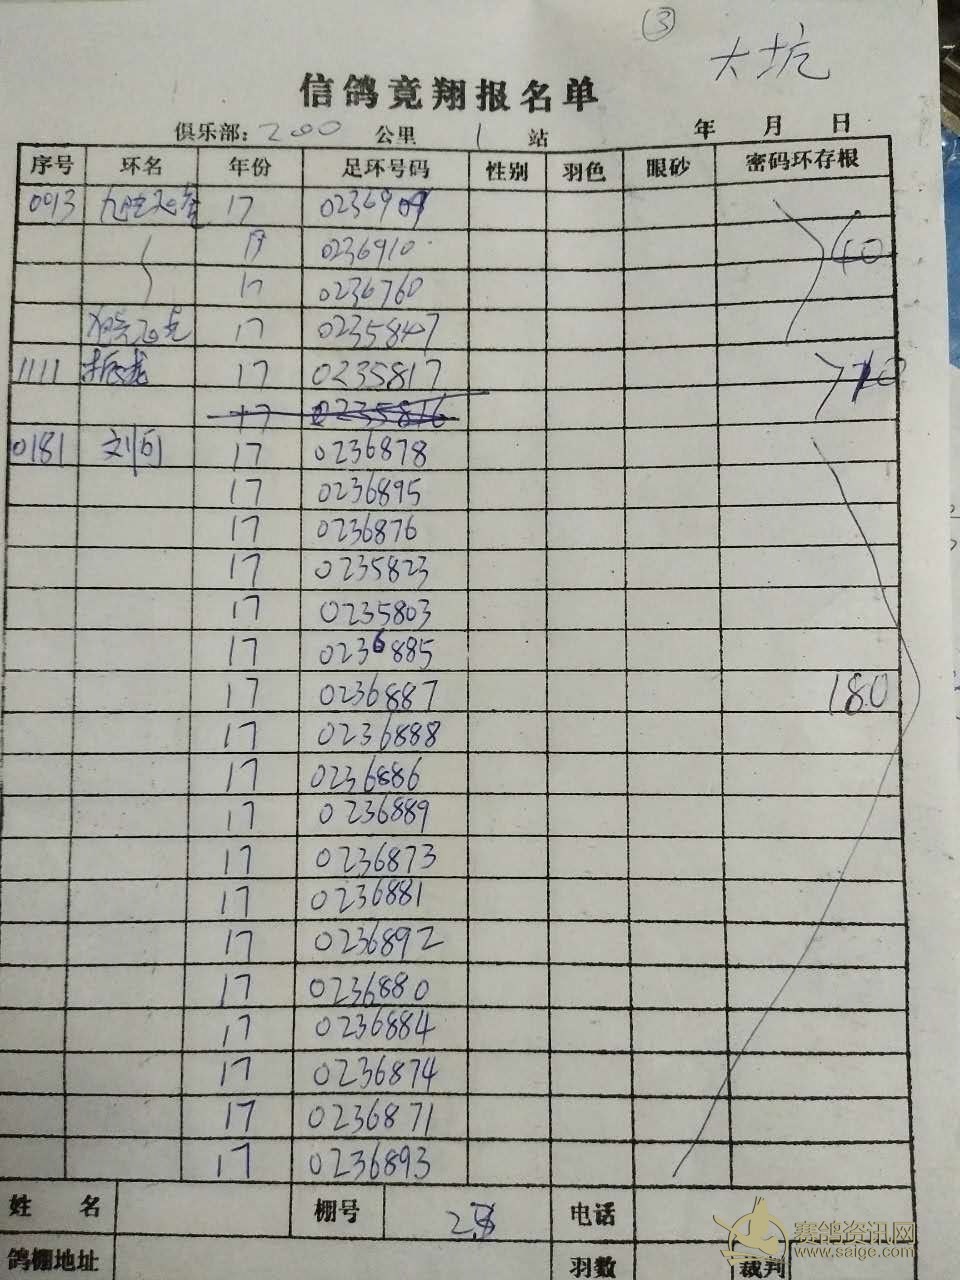 ③
大坑
信鸽竞翔报名单
俱乐部: 200 公里 1 站 年 月 日
序号 环名 年份 足环号码 性别 羽色 眼砂 密码环存根
0093 17 0236909
17 0236910 40
17 0236760
17 0235847
1111 振龙 17 0235817 10
17 0235816
0181 刘向 17 0236878
17 0236895
17 0236876
17 0235823
17 0235803
17 0236885
17 0236887 180
17 0236888
17 0236886
17 0236889
17 0236873
17 0236881
17 0236892
17 0236880
17 0236884
17 0236874
17 0236871
17 0236893
姓 名 棚号 电话
鸽棚地址 羽数 裁判
赛鸽资讯网
www.saige.com